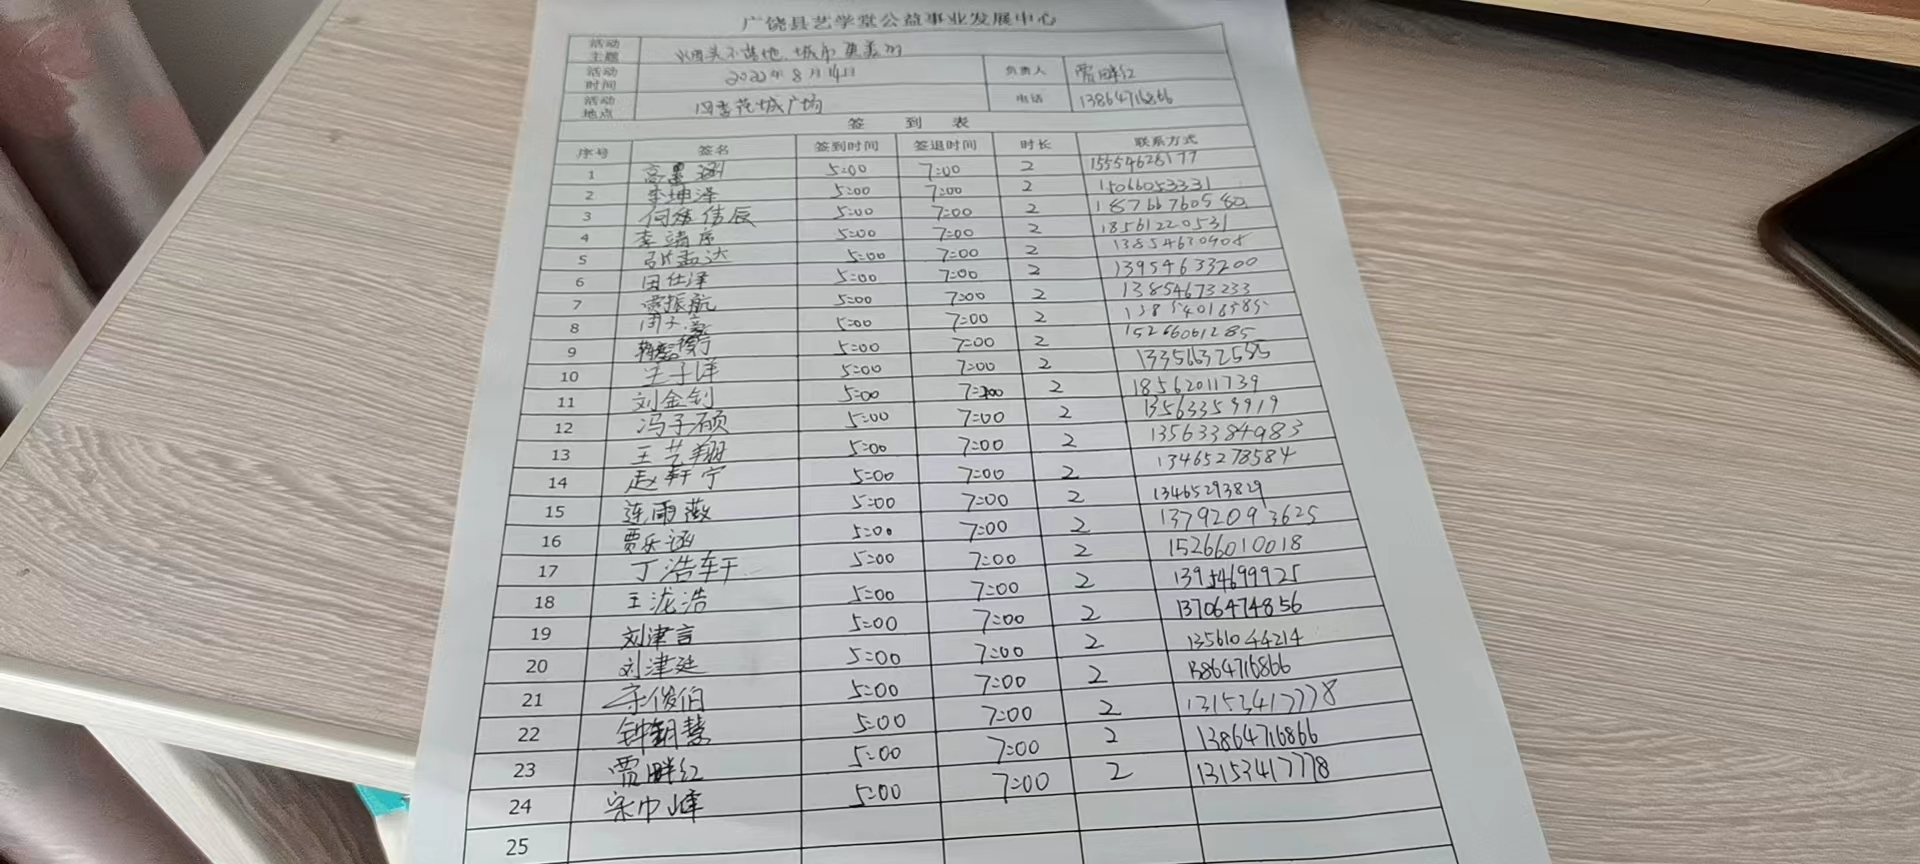 广饶县艺学堂公益事业发展中心
活动主题 烟头不落地,城市更美丽
活动时间 2022年8月14日 负责人 贾畔红
活动地点 四季花城广场 电话 13864716866
签 到 表
序号 签名 签到时间 签退时间 时长 联系方式
1 高墨涵 5:00 7:00 2 15554628177
2 李坤泽 5:00 7:00 2 15066053331
3 何 信辰 5:00 7:00 2 18766760580
4 李靖 5:00 7:00 2 18561220531
5 张孟达 5:00 7:00 2 13854630908
6 田仕泽 5:00 7:00 2 13954633200
7 贾振航 5:00 7:00 2 13854673233
8 周子豪 5:00 7:00 2
9 5:00 7:00 2 15266061285
10 王子洋 5:00 7:00 2 13356632585
11 刘金钊 5:00 7:00 2 18562011739
12 冯子硕 5:00 7:00 2 13563359919
13 王艺翔 5:00 7:00 2 13563384983
14 赵轩宁 5:00 7:00 2 13465278584
15 连雨薇 5:00 7:00 2 13465293829
16 贾乐涵 5:00 7:00 2 13792093625
17 丁浩轩 5:00 7:00 2 15266010018
18 王泷浩 5:00 7:00 2 13954699925
19 刘津言 5:00 7:00 2 13706474856
20 刘津廷 5:00 7:00 2 13561044214
21 宋俊伯 5:00 7:00 2 13864716866
22 钟钥慧 5:00 7:00 2 13153417778
23 贾畔红 5:00 7:00 2 13864716866
24 宋巾峰 5:00 7:00 2 13153417778
25